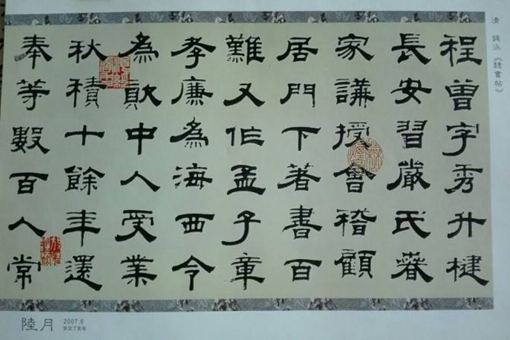 清 錢泳《隸書帖》
程曾字秀升
長安習嚴氏春
家講授會稽顧
居門下著書百
難又作孟子章
孝廉為海西令
為 中人受業
秋積十餘年還
奉等數百人常
陸月
2007.6
农历丁亥年